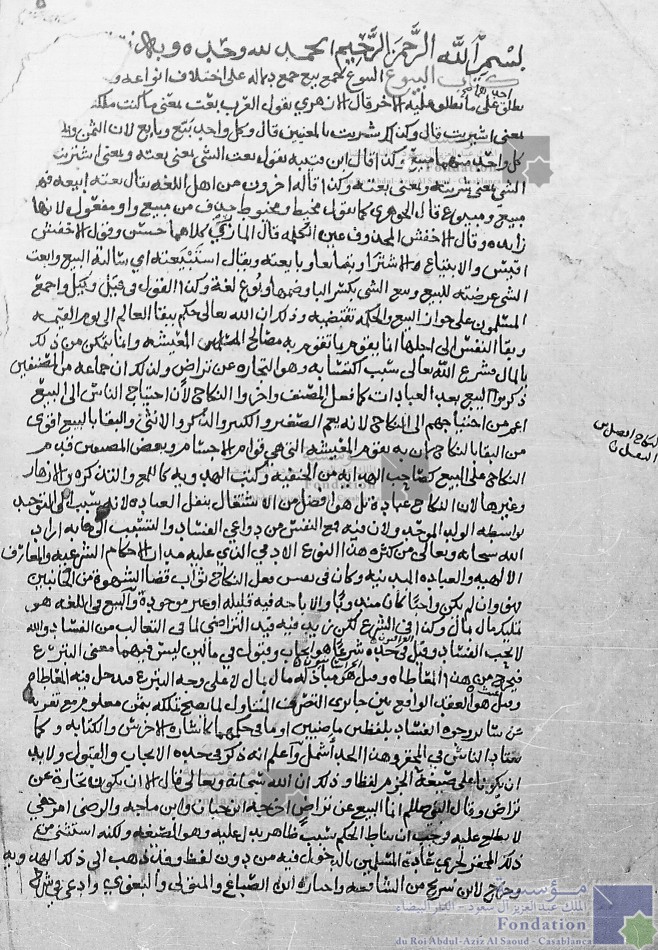 بسم الله الرحمن الرحيم الحمد لله وحده وبه
كتاب البيوع البيوع جمع بيع جمع بماله على اختلاف انواعه و
يطلق على ما يطلق عليه الاخر قال الازهري تقول العرب بعت بمعنى ما كنت ملكته
بمعنى اشتريت قال وكذلك شريت بالمعنيين قال وكل واحد بيع وبايع لان الثمن و
كل واحد منهما مبيع وكذا قال ابن قتيبه يقول بعت الشي بمعنى بعته وبمعنى اشتريت
الشي بمعنى شريته وبمعنى بعته وكذا قاله اخرون من اهل اللغه يقال بعته ابيعه فهو
مبيع ومبيوع قال الجوهري كما تقول مخيط ومخيوط حذف من مبيع واو مفعول لانها
زايده وقال الاخفش المحذوف عين الكلمه قال المازني كلاهما حسن وقول الاخفش
اقيس والابتياع الاشترا وتبايعا وبايعته ويقال استبيعته اي سالته البيع وابعت
الشي عرضته للبيع وبيع الشي بكسر البا وضمها وبوع لغة وكذا القول في قيل وكيل واجمع
المسلمون على جواز البيع والحكمه تقتضيه وذلك ان الله تعالى حكم ببقا العالم الى يوم القيمه
وبقا النفس الى اجلها انما يقوم بما تقوم به مصالح المعيشه وانما يتمكن من ذلك
بالمال فشرع الله تعالى سبب اكتسابه وهو التجاره عن تراض ولذلك ان جماعه من المصنفين
ذكروا البيع بعد العبادات كما فعل المصنف واخروا النكاح لان احتياج الناس الى البيع
اعم من احتياجهم الى النكاح لانه يعم الصغير والكبير والذكر والانثى والبقا بالبيع اقوى
من البقا بالنكاح لان به تقوم المعيشه التي هي قوام الاجسام وبعض المصنفين قدم
النكاح على البيع كصاحب الهدايه من الحنفيه وكتب الهدويه كاللمع والتذكره والازهار
وغيرها لان النكاح عبادة بل هو افضل من الاشتغال بنفل العباده لانه سبب الى التوحيد
بواسطه الولد الموحد ولان فيه مع النفس من دواعي الفساد والتسبب الى ما به اراد
الله سبحانه وتعالى من كثره هذا النوع الادمي الذي عليه مدار الاحكام الشرعيه والمعارف
الالهيه والعباده البدنيه وكان في نفس فعل النكاح ثواب قضا الشهوة من الجانبين
وان لم يكن واجبا كان مندوبا والاباحه فيه قليله او غير موجودة والبيع في اللغه هو
تمليك مال بمال وكذا في الشرع لكن زيد فيه قيد التراضي لما في التغالب من الفساد والله
لا يحب الفساد وقيل في حده شرعا هو ايجاب وقبول في مالين ليس فيهما معنى التبرع
فيخرج من هذا المعاطاه وقيل هو مبادله مال بمال لا على وجه التبرع فدخل فيه المعاطاه
وقيل هو العقد الواقع بين جايزي التصرف المتناول لما يصح تملكه بثمن معلوم مع تعريه
عن ساير وجوه الفساد بلفظين ماضيين او ما في حكمهما كاشاره الاخرس والكتابه وكما
يعتاد الناس في المحقر وهذا الحد اشمل واعلم انه ذكر في حده الايجاب والقبول ولا بد
ان يكونا على صيغة الجزم لفظا وذلك ان الله سبحانه وتعالى قال الا ان تكون تجارة عن
تراض وقال النبي صللم انما البيع عن تراض اخرجه ابن حبان وابن ماجه والرضى امر خفي
لا يطلع عليه وجب ان يناط الحكم بسبب ظاهر يدل عليه وهو الصيغه ولكنه استثنى من
ذلك المحقر لجري عادة المسلمين بالدخول فيه من دون لفظ وقد ذهب الى ذلك الهدويه
وخرج لابن سريج من الشافعيه واختاره ابن الصباغ والمتولي والبغوي وادعى
النكاح افضل من
مؤسسة
الملك عبد العزيز آل سعود - الدار البيضاء
Fondation
du Roi Abdul-Aziz Al Saoud - Casablanca